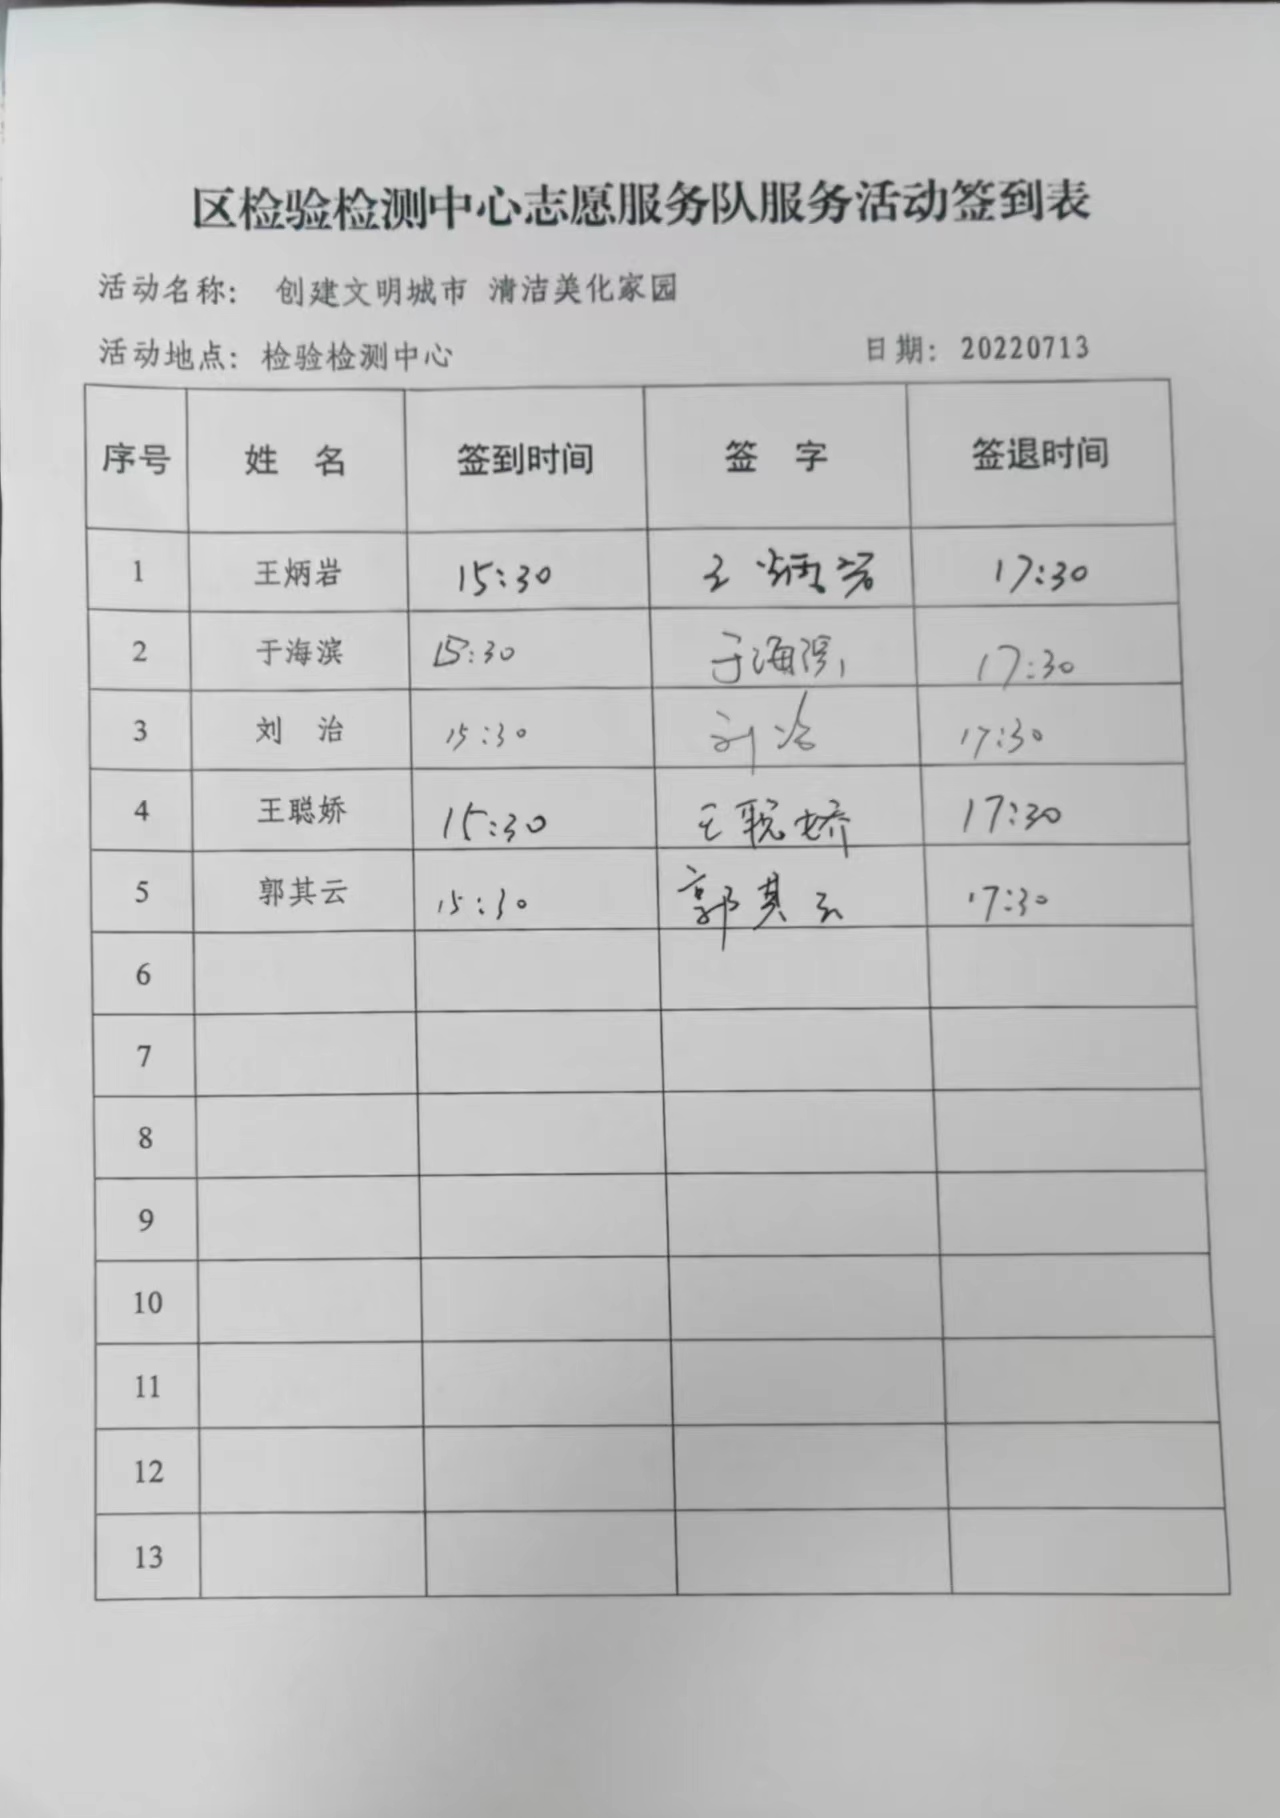 区检验检测中心志愿服务队服务活动签到表
活动名称： 创建文明城市 清洁美化家园
活动地点：检验检测中心 日期：20220713
序号 姓 名 签到时间 签 字 签退时间
1 王炳岩 15:30 王炳岩 17:30
2 于海滨 15:30 于海滨 17:30
3 刘 治 15:30 刘治 17:30
4 王聪娇 15:30 王聪娇 17:30
5 郭其云 15:30 郭其云 17:30
6
7
8
9
10
11
12
13